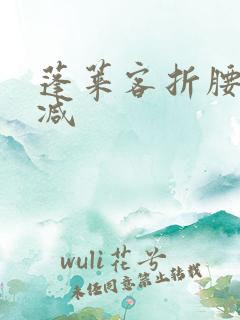 蓬莱客折腰
减
wuli花兮
未经同意禁止转载